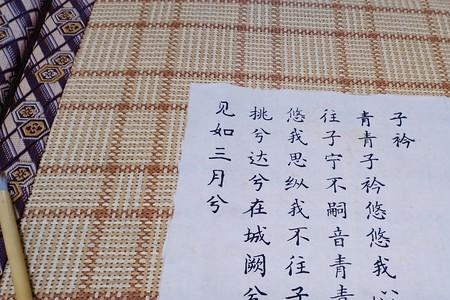 子衿
青青子衿悠悠我心
往子宁不嗣音青青
悠我思纵我不往子
挑兮达兮在城阙兮
见如三月兮